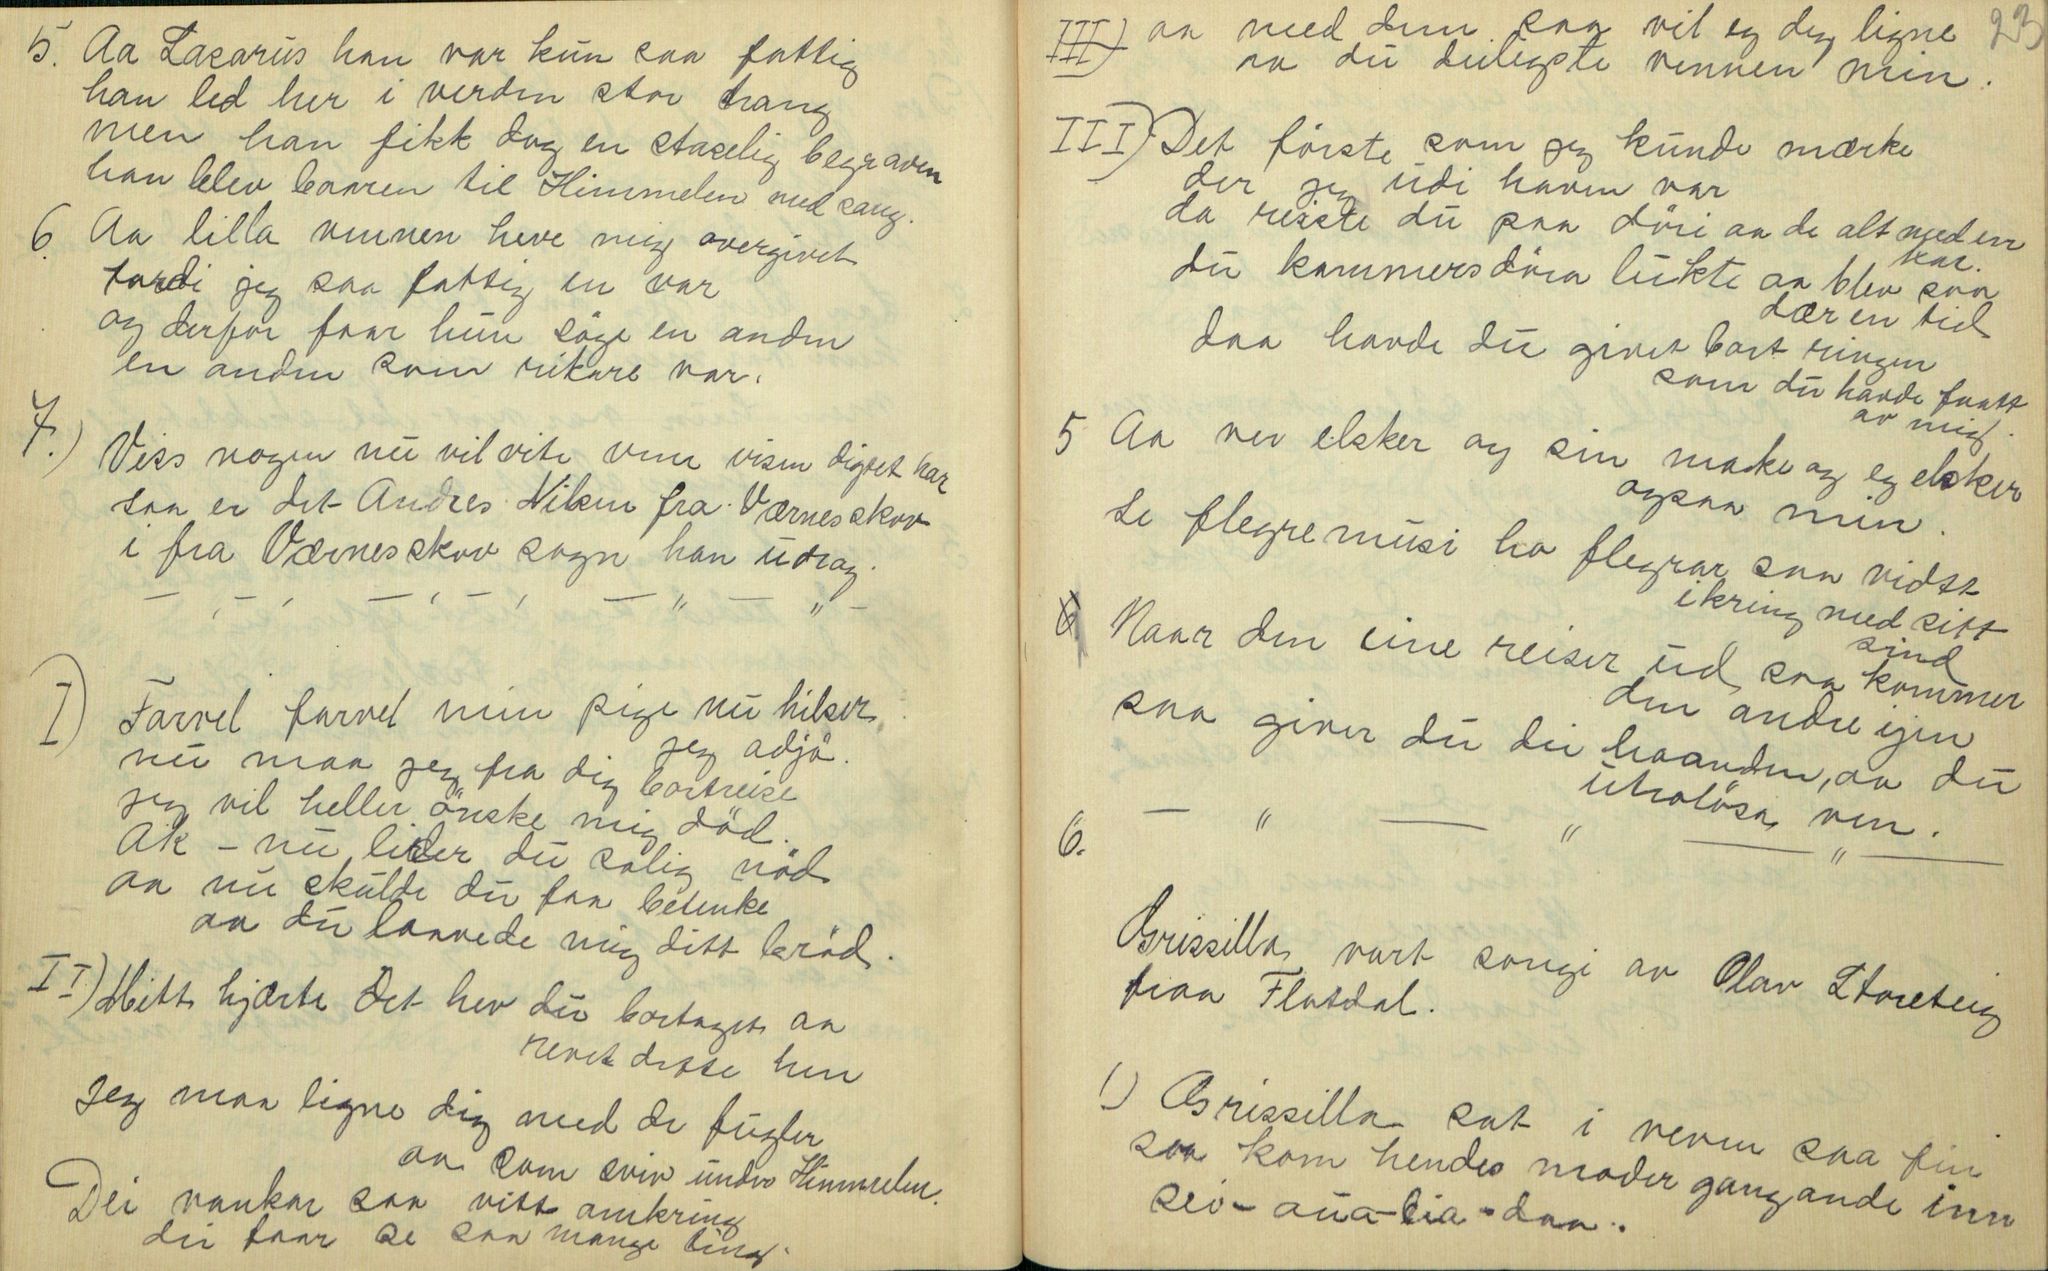 5. Aa Lasarus han var kun saa fattig
han led her i verden stor trang
men han fikk dog en staselig begraven
han blev baaren til Himmelen med sang.
6. Aa lilla vennen heve mig overgivet
fordi jeg saa fattig en var
og derfor faar hun söge en anden
en anden som rikare var.
7.) Viss nogen nu vil vite vem visen digtet har
saa er det Andres Nilsen fra Værnesskov
i fra Værnesskov sogn han udrog.
I) Farvel farvel min pige nu hilser
jeg adjö.
nu maa jeg fra dig bortreise
jeg vil heller önske mig död.
Ak - nu lider du salig nöd
aa nu skulde du faa betenke
aa du lovede mig ditt bröd.
II.) Mitt hjærte det hev du bortaget aa
revet dette hen
Jeg maa ligne dig med de fugler
aa som sviv under Himmelen.
Dei vankar saa vitt omkring
dei faar se saa mange ting.
23
III) aa med dem saa vil eg deg ligne
aa du deilegste vennen min.
III) Det förste som jeg kunde mærke
der jeg udi haven var
da reiste du paa döri aa de alt med en
kar.
du kammersdöra lukte aa blev saa
dær en tid
daa havde du givet bort ringen
som du havde faatt
av mig.
5 Aa ver elsker og sin make og eg elsker
ogsaa min.
Se flegremusi ho flegrar saa vidtt
ikring med sitt
sind
6 Naar den eine reiser ud saa kommer
den andre igen
saa giver du dei haanden, aa du
utrolösa ven.
6.
Grissilla vart songi av Olav Storeteig
fraa Flatdal.
1) Grissilla sat i veven saa fin
saa kom hendes moder gangande inn
sei - aua - lia - daa.